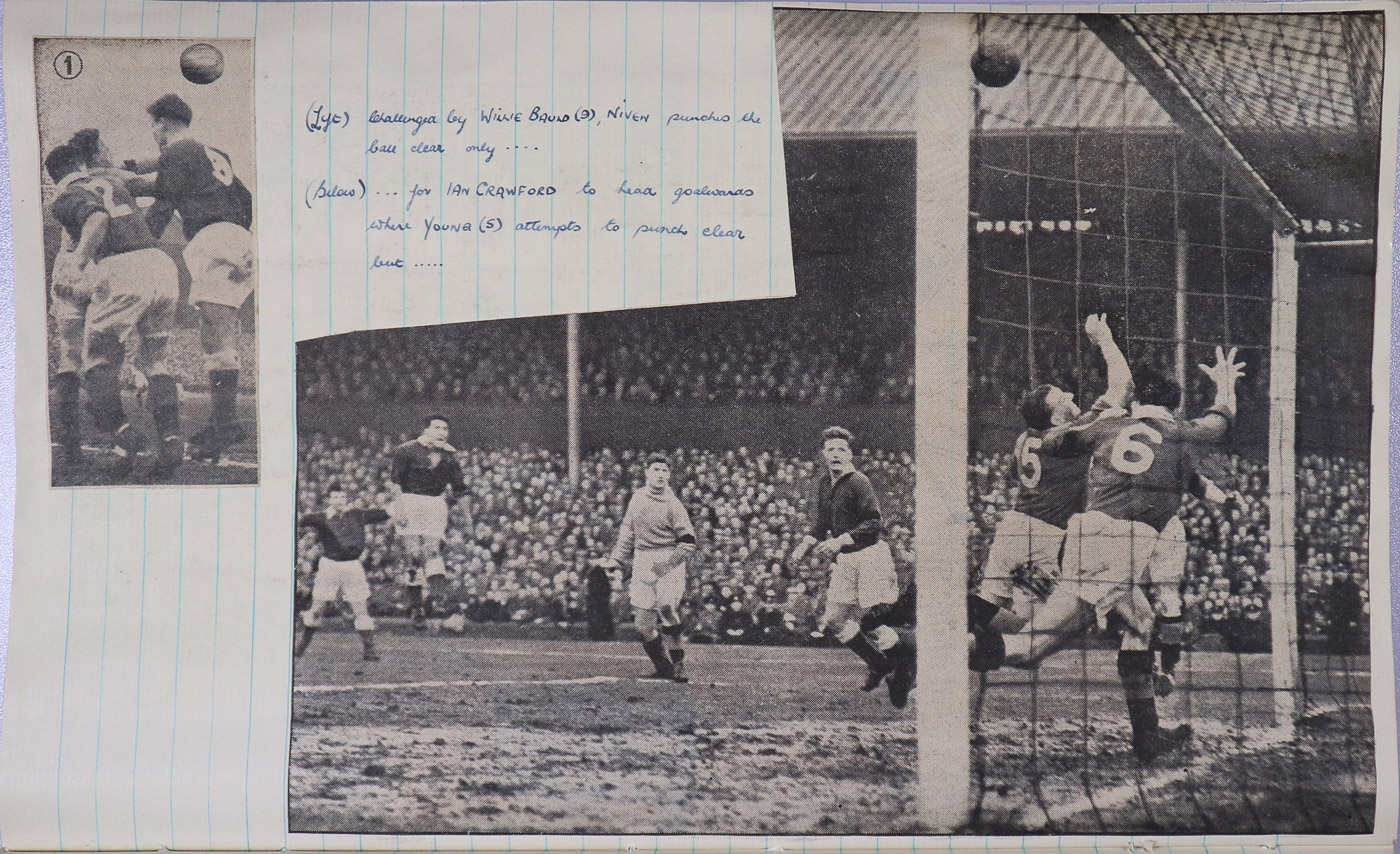 1
(Left) Challenged by WILLIE BAULD (9), NIVEN punches the
ball clear only ....
(Below) ... for IAN CRAWFORD to head goalwards
where YOUNG (5) attempts to punch clear
but .....
2
5
6